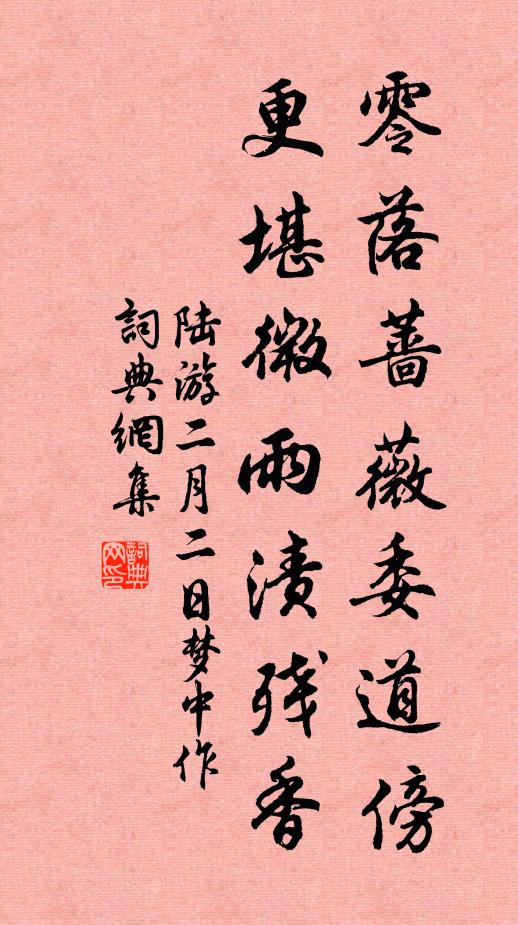 零落蔷薇委道傍
更堪微雨渍残香
陆游二月二日梦中作
詞典網集
詞典
网印